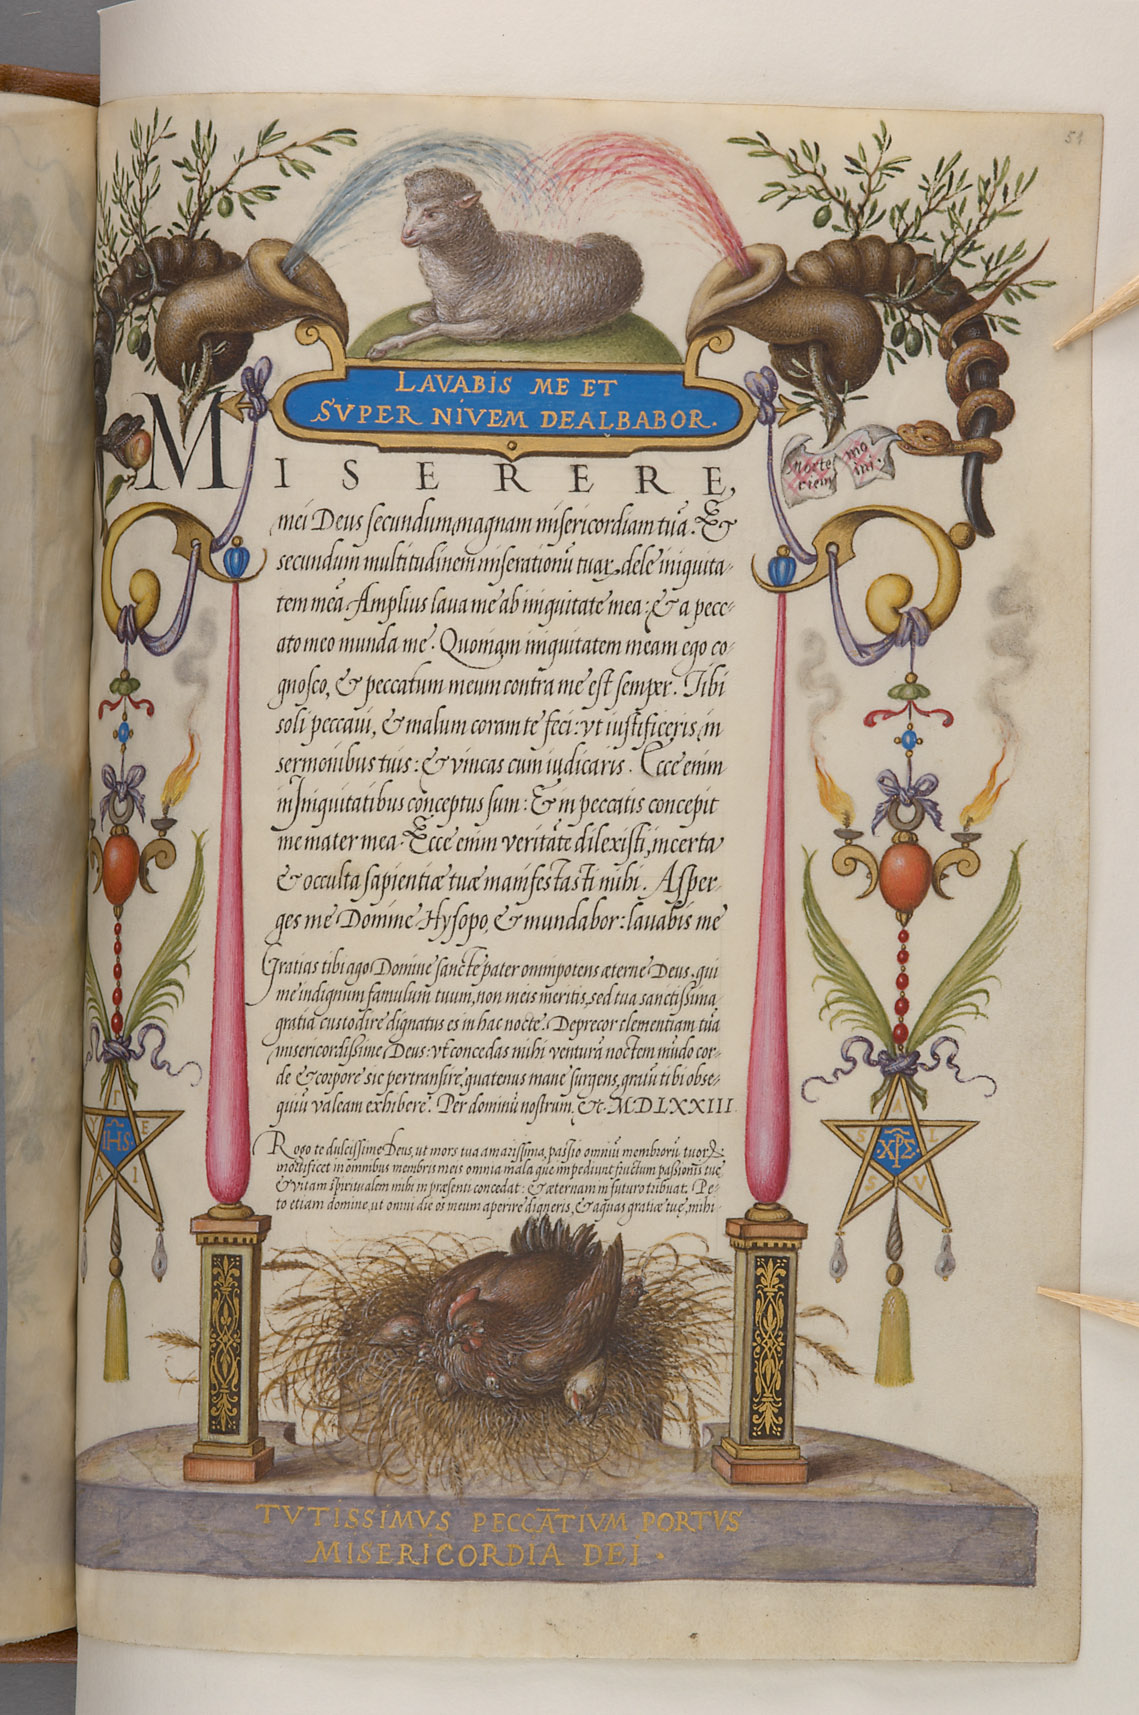 51
LAVABIS ME ET
SVPER NIVEM DEALBABOR.
MISERERE,
Morte mo
riem ini:
mei Deus secundum magnam misericordiam tuã. Et
secundum multitudinem miserationũ tuaꝝ dele iniquita-
tem meã. Amplius laua me ab iniquitate mea: & a pecc-
ato meo munda me. Quoniam iniquitatem meam ego co-
gnosco, & peccatum meum contra me est semper. Tibi
soli peccaui, & malum coram te feci: vt iustificeris in
sermonibus tuis: & vincas cum iudicaris. Ecce enim
in Iniquitatibus conceptus sum: & in peccatis concepit
me mater mea. Ecce enim veritãte dilexisti, incerta
& occulta sapientiæ tuæ manifestasti mihi. Asper-
ges me Domine Hysopo, & mundabor: lauabis me
Gratias tibi ago Domine sancte pater omnipotens æterne Deus, qui
me indignum famulum tuum, non meis meritis, sed tua sanctissima
gratia custodire dignatus es in hac nocte. Deprecor clementiam tuã
misericordissime Deus: vt concedas mihi venturã noctem mũdo cor-
de & corpore sic pertransire, quatenus mane surgens, gratũ tibi obse-
quiũ valeam exhibere. Per dominũ nostrum, &c. MDLXXIII.
Rogo te dulcissime Deus, ut mors tua amarissima, passio omniũ membrorũ tuorꝝ
mortificet in omnibus membris meis omnia mala que impediunt fructum passionis tue,
& vitam spiritualem mihi in præsenti concedat: & æternam in futuro tribuat. Pe-
to etiam domine, ut omni die os meum aperire digneris, & aquas gratiæ tuę, mihi
IHS
Y E
A I
XPS
S A L
S V
TVTISSIMVS PECCÃTIVM PORTVS
MISERICORDIA DEI.